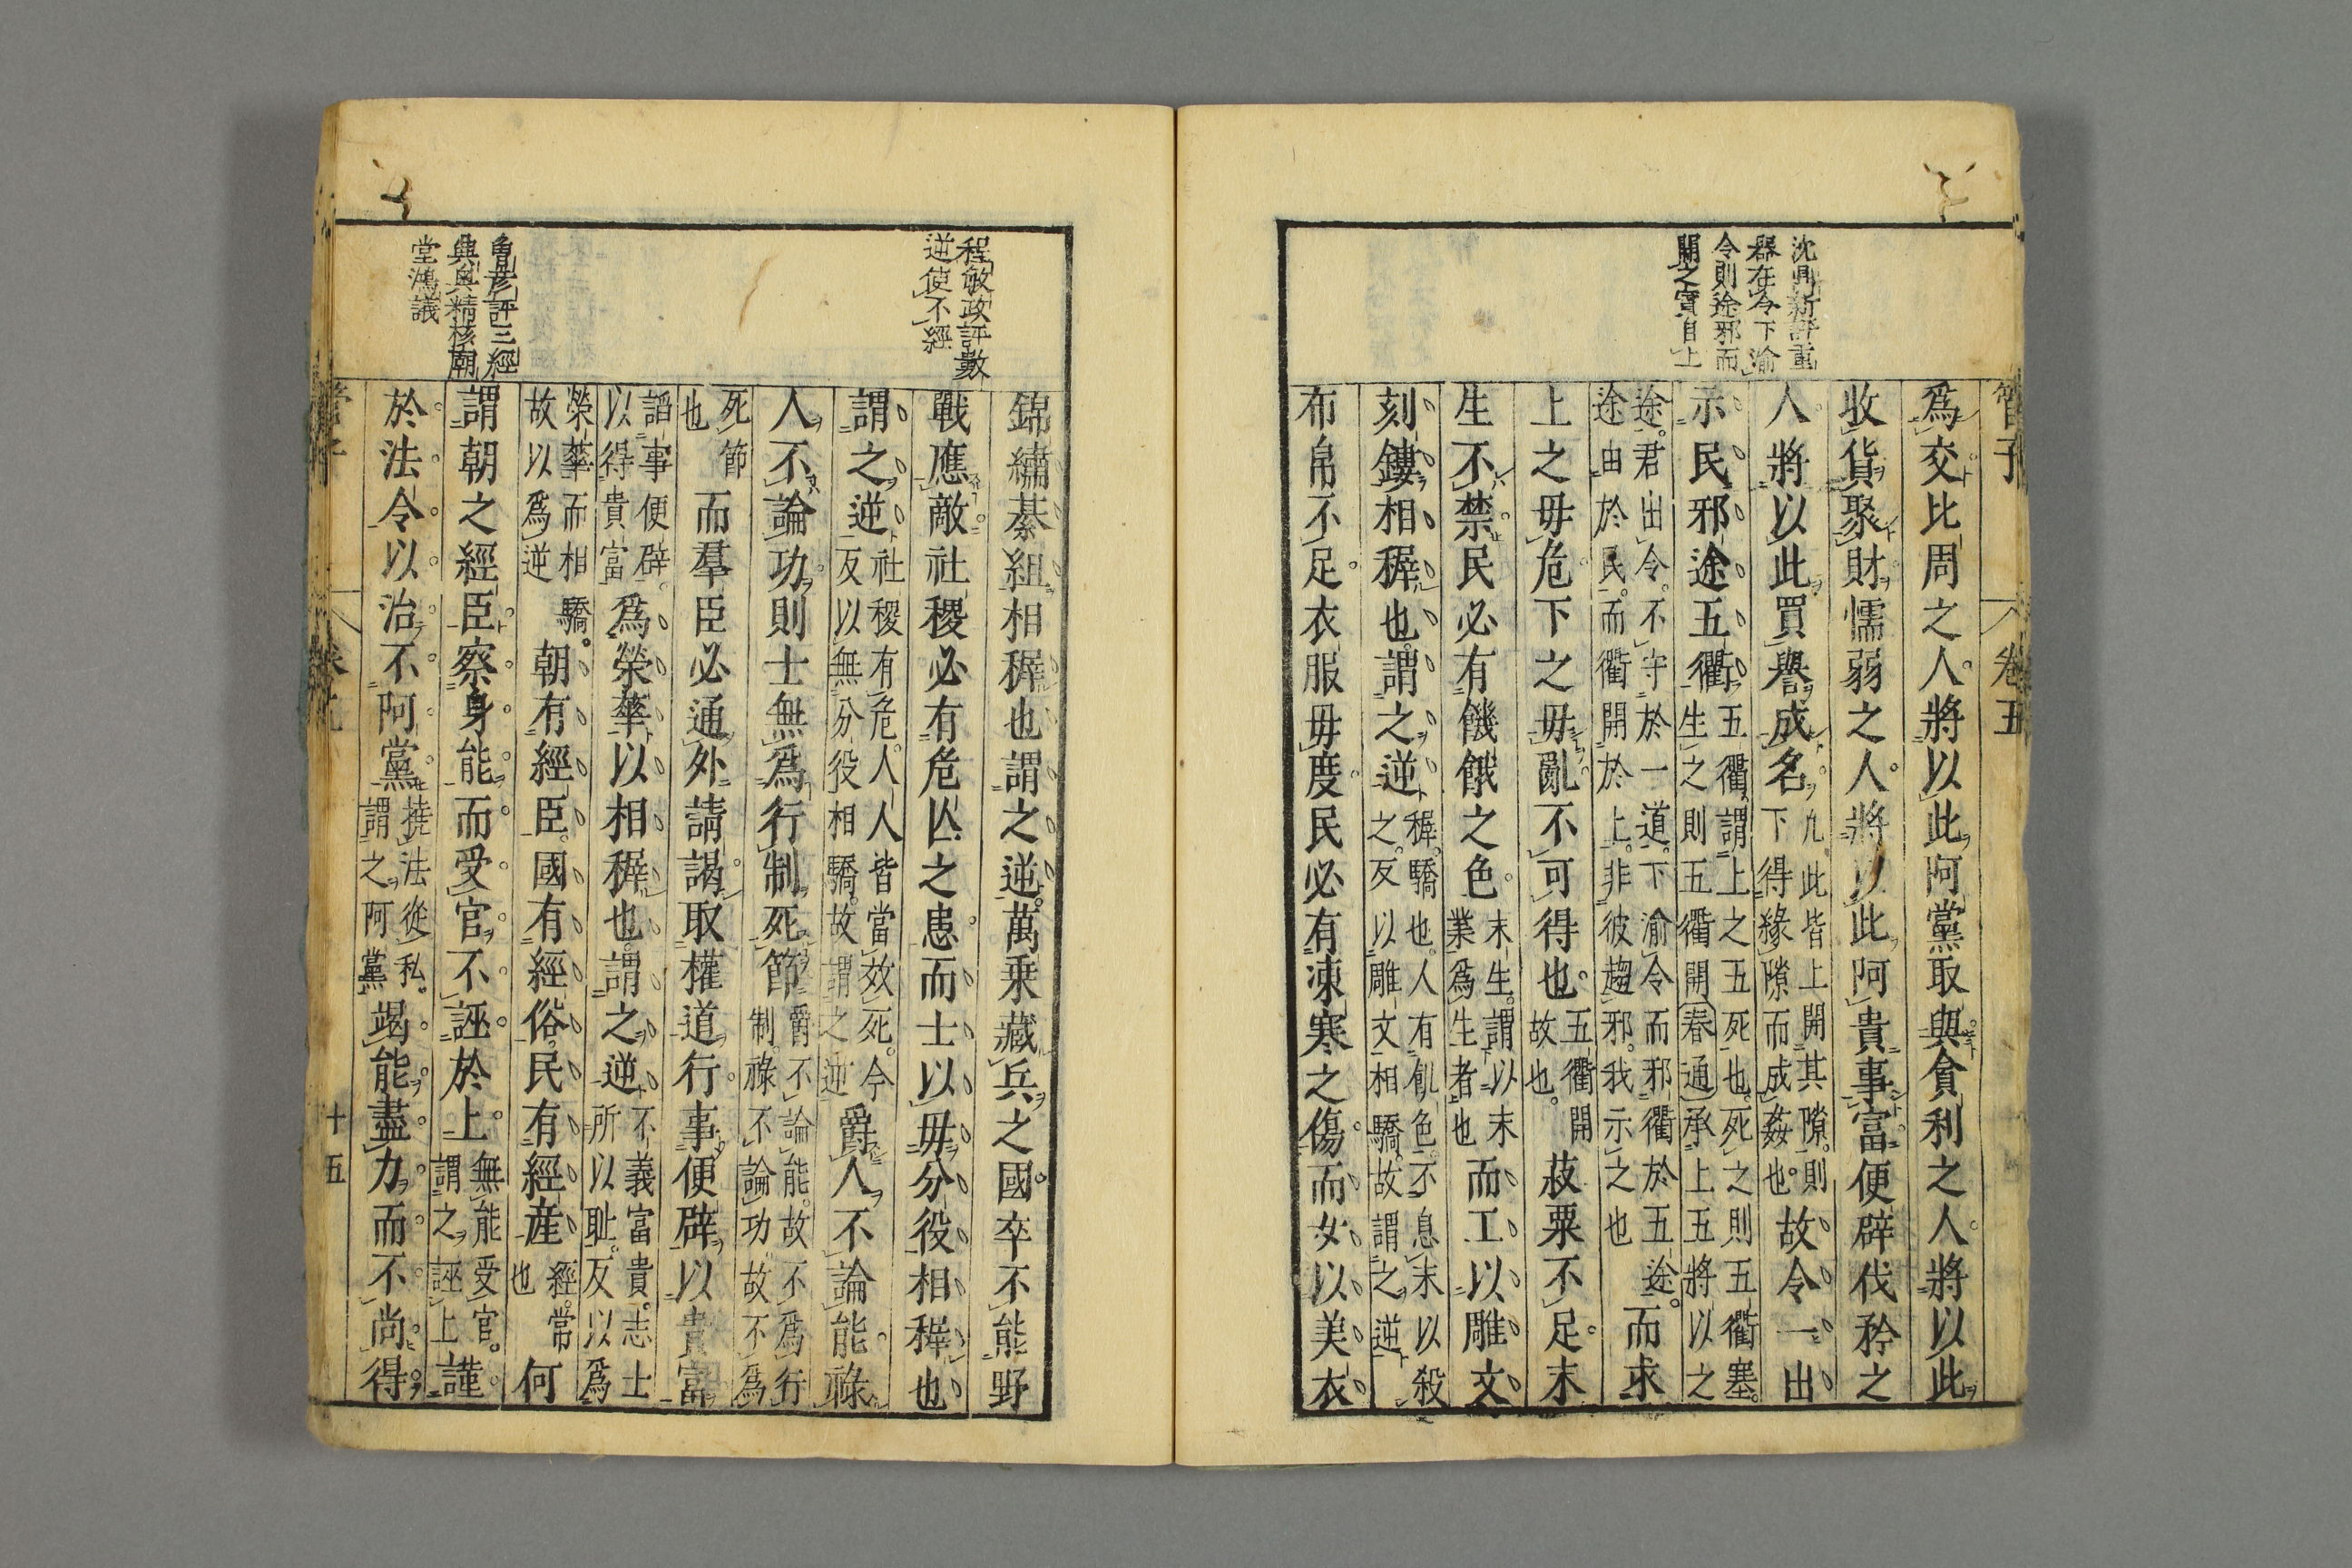 管子
卷五
沈鼎新評重
器在令下渝
令則途邪而
開之實自上
爲交比周之人將以此阿黨取與貪利之人將以此
收貨聚財懦弱之人將以此阿貴事富便辟伐矜之
人將以此買譽成名凡此皆上開其隙則
下得緣隙而成姦也故令一出
示民邪途五衢五衢謂上之五死也死之則五衢塞
生之則五衢開春通承上五將以之
途君出令不守於一道下渝令而邪衢於五途
途由於民而衢開於上非彼趨邪我示之也而求
上之毋危下之毋亂不可得也五衢開
故也菽粟不足末
生不禁民必有饑餓之色末生謂以末
業爲生者也而工以雕文
刻鏤相穉也謂之逆穉驕也人有飢色不息末以殺
之反以雕文相驕故謂之逆
布帛不足衣服毋度民必有凍寒之傷而女以美衣
程敏政評數
逆使不經
錦繡綦組相穉也謂之逆萬乗藏兵之國卒不能野
戰應敵社稷必有危亾之患而士以毋分役相穉也
謂之逆社稷有危人人皆當效死今
反以無分役相驕故謂之逆爵人不論能祿
人不論功則士無爲行制死節爵不論能故不爲行
制祿不論功故不爲
死節
也而羣臣必通外請謁取權道行事便辟以貴富
諂事便辟
以得貴富爲榮華以相穉也謂之逆不義富貴志士
所以耻反以爲
榮華而相驕
故以爲逆朝有經臣國有經俗民有經産經常
也何
魯彦評三經
典與精核廟
堂鴻議
謂朝之經臣察身能而受官不誣於上無能受官
謂之誣上謹
於法令以治不阿黨撓法從私
謂之阿黨竭能盡力而不尚得
十五